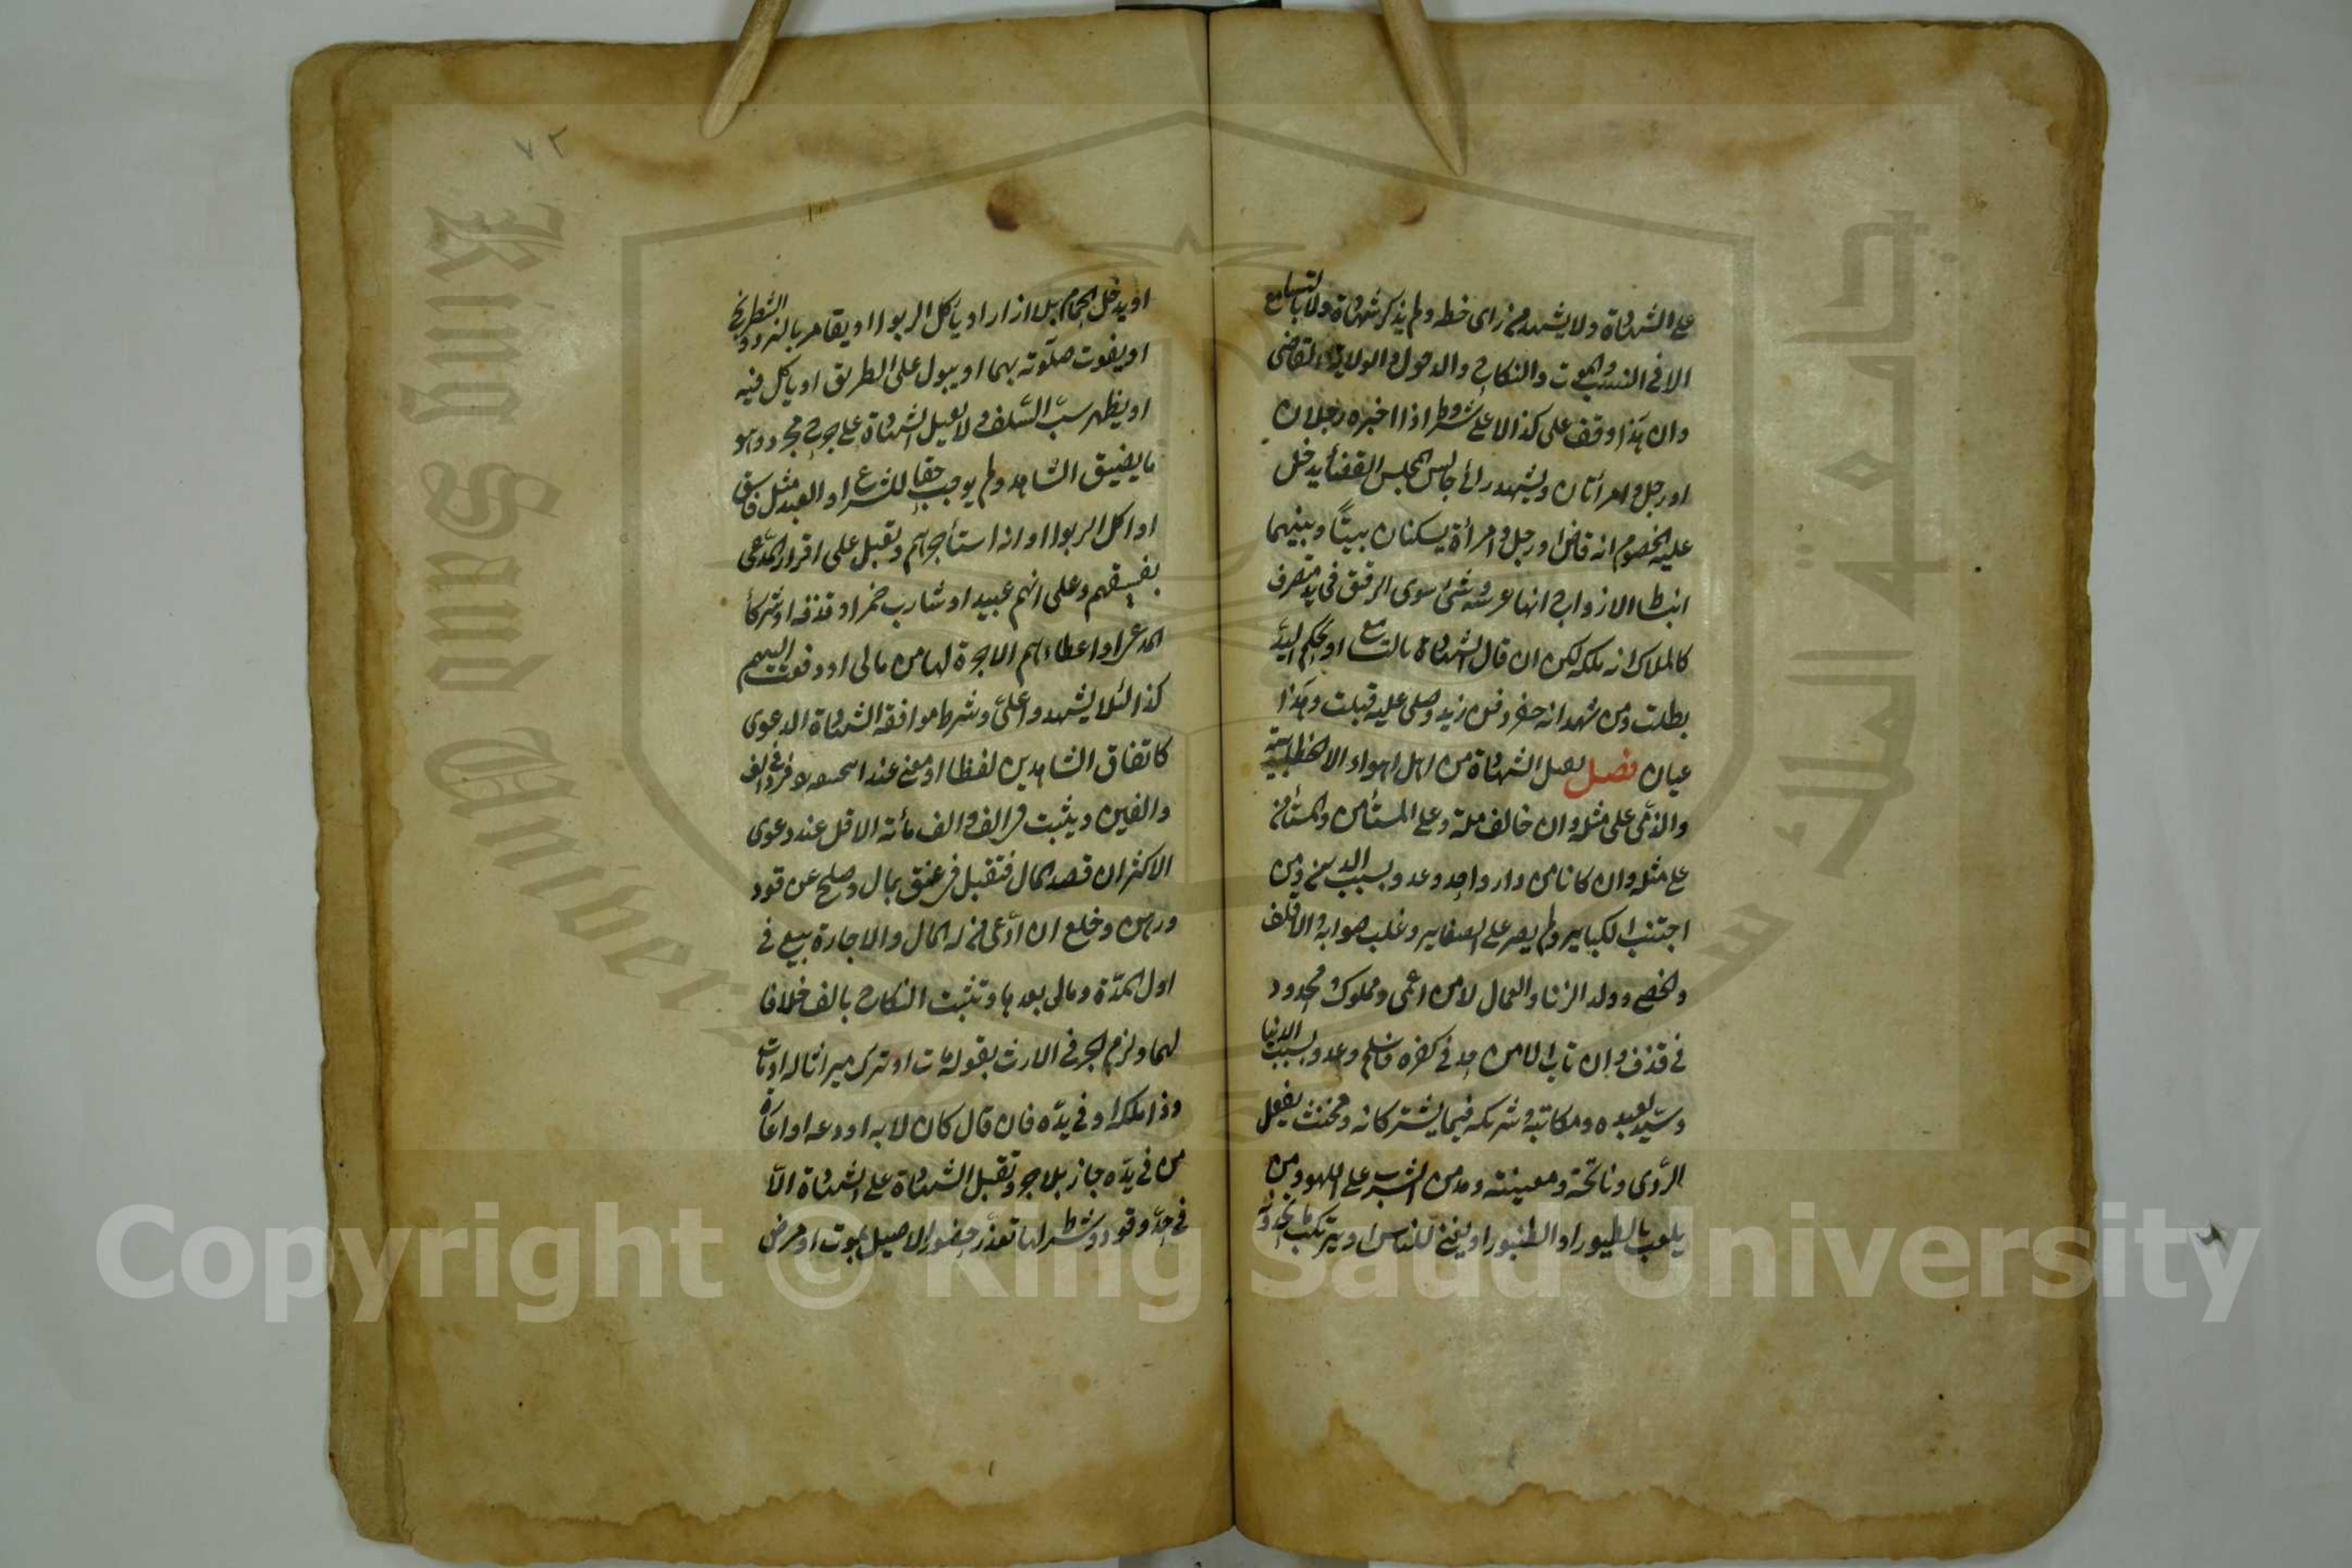 على الشهادة ولا يشهد من راى خطه ولم يذكر شهادة ولا بالتسامع
الا في النسب والموت والنكاح والدخول والولاية القاضى
وان هذا وقف على كذا لا على شروط اذا اخبره رجلان
او رجل وامرأتان ويشهد رائ جالس مجلس القضأ يدخل
عليه الخصوم انه قاض او رجل وامرأة يسكنان بيتاً وبينهما
انبساط الازواج انها عرسه وشئ سوى الرقيق في يد متصرف
كالملاك انه ملكه لكن ان قال الشهادة بالتسامع او بحكم اليد
بطلت ومن شهد انه حضر دفن زيد وصلى عليه قبلت وهذا
عيان فصل يقبل الشهادة من اهل اهواء الا الخطابية
والذمى على مثله وان خالف ملة وعلى المستأمن والمستأمن
على مثله وان كانا من دار واحد وعدو بسبب الدين ومن
اجتنب الكباير ولم يصر على الصغاير وغلب صوابه والاقلف
والخصى وولد الزنا والعمال لا من اعمى ومملوك ومحدود
في قذف وان تاب الا من حد في كفره فاسلم وعدو بسبب الدنيا
وسيد لعبده ومكاتبه وشريكه فيما يشتركانه ومخنث يفعل
الردى ونائحة ومغينة ومدمن الشرب على اللهو ومن
يلعب بالطيور او الطنبور او يغنى للناس او يرتكب ما يحد به
٧٢
او يدخل الحمام بلا ازار او يأكل الربوا او يقامر بالنرد والشطرنج
او يفوت صلوته بهما او يبول على الطريق او يأكل فيه
او يظهر سب السلف ولا يقبل الشهادة على جرح مجرد وهو
ما يفسق الشاهد ولم يوجب حقا للشرع او العبد مثل فاسق
او اكل الربوا او انه استأجرهم وتقبل على اقرار المدعى
بفسقهم وعلى انهم عبيد او شارب خمر او قذفه او شركأ
المدعى او اعطاءهم الاجرة لها من مالى او دفعت اليهم
كذا لئلا يشهدوا على وشرط موافقة الشهادة الدعوى
كاتفاق الشاهدين لفظا او معنى عند ابى حنيفة فترد في الف
والفين ويثبت في الف والف مأئة الاقل عند دعوى
الاكثر ان قصد المال فتقبل في عتق بمال وصلح عن قود
ورهن وخلع ان ادعى من له المال والاجارة بيع في
اول المدة ومالى بعدها وتثبت النكاح بالف خلافا
لهما ولزم الجر في الارث بقوله مات او ترك ميراثا له او مات
وذا ملكه او في يده فان قال كان لابه اودعه او اعاره
من في يده جاز بلا جر وتقبل الشهادة على الشهادة الا
في حد وقود وشرط لها تعذر حضور الاصيل بموت او مرض